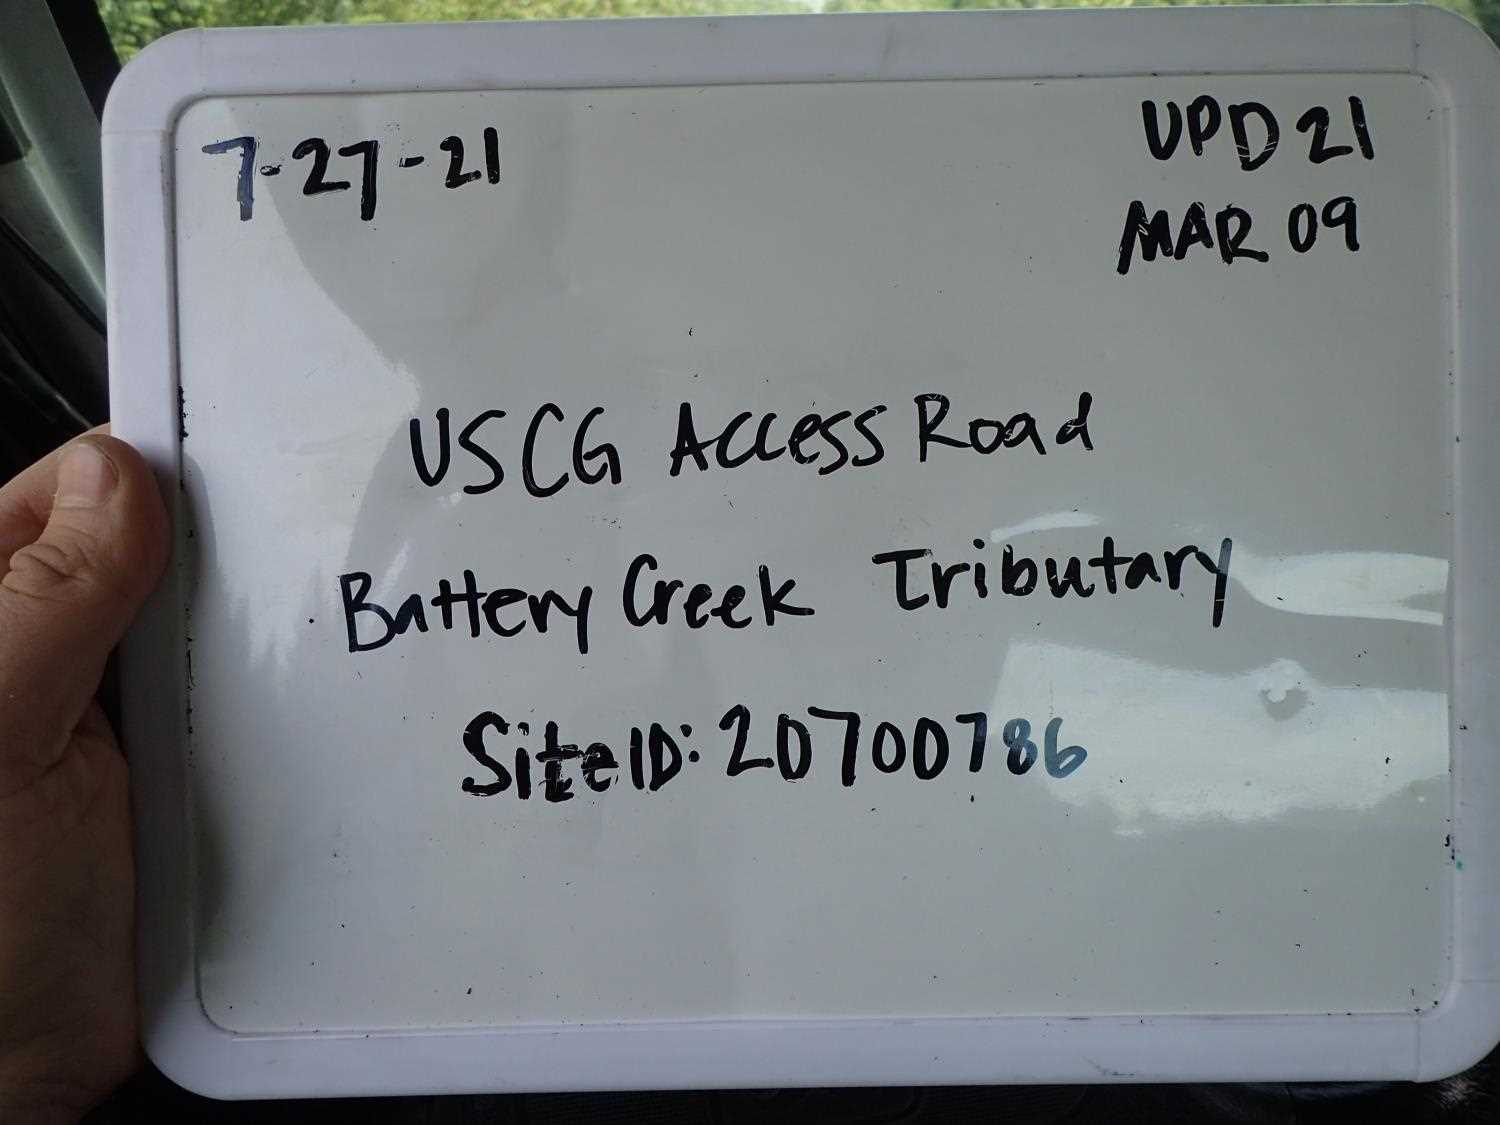 7-27-21
UPD 21
MAR 09
USCG Access Road
Battery Creek Tributary
Site ID: 20700786